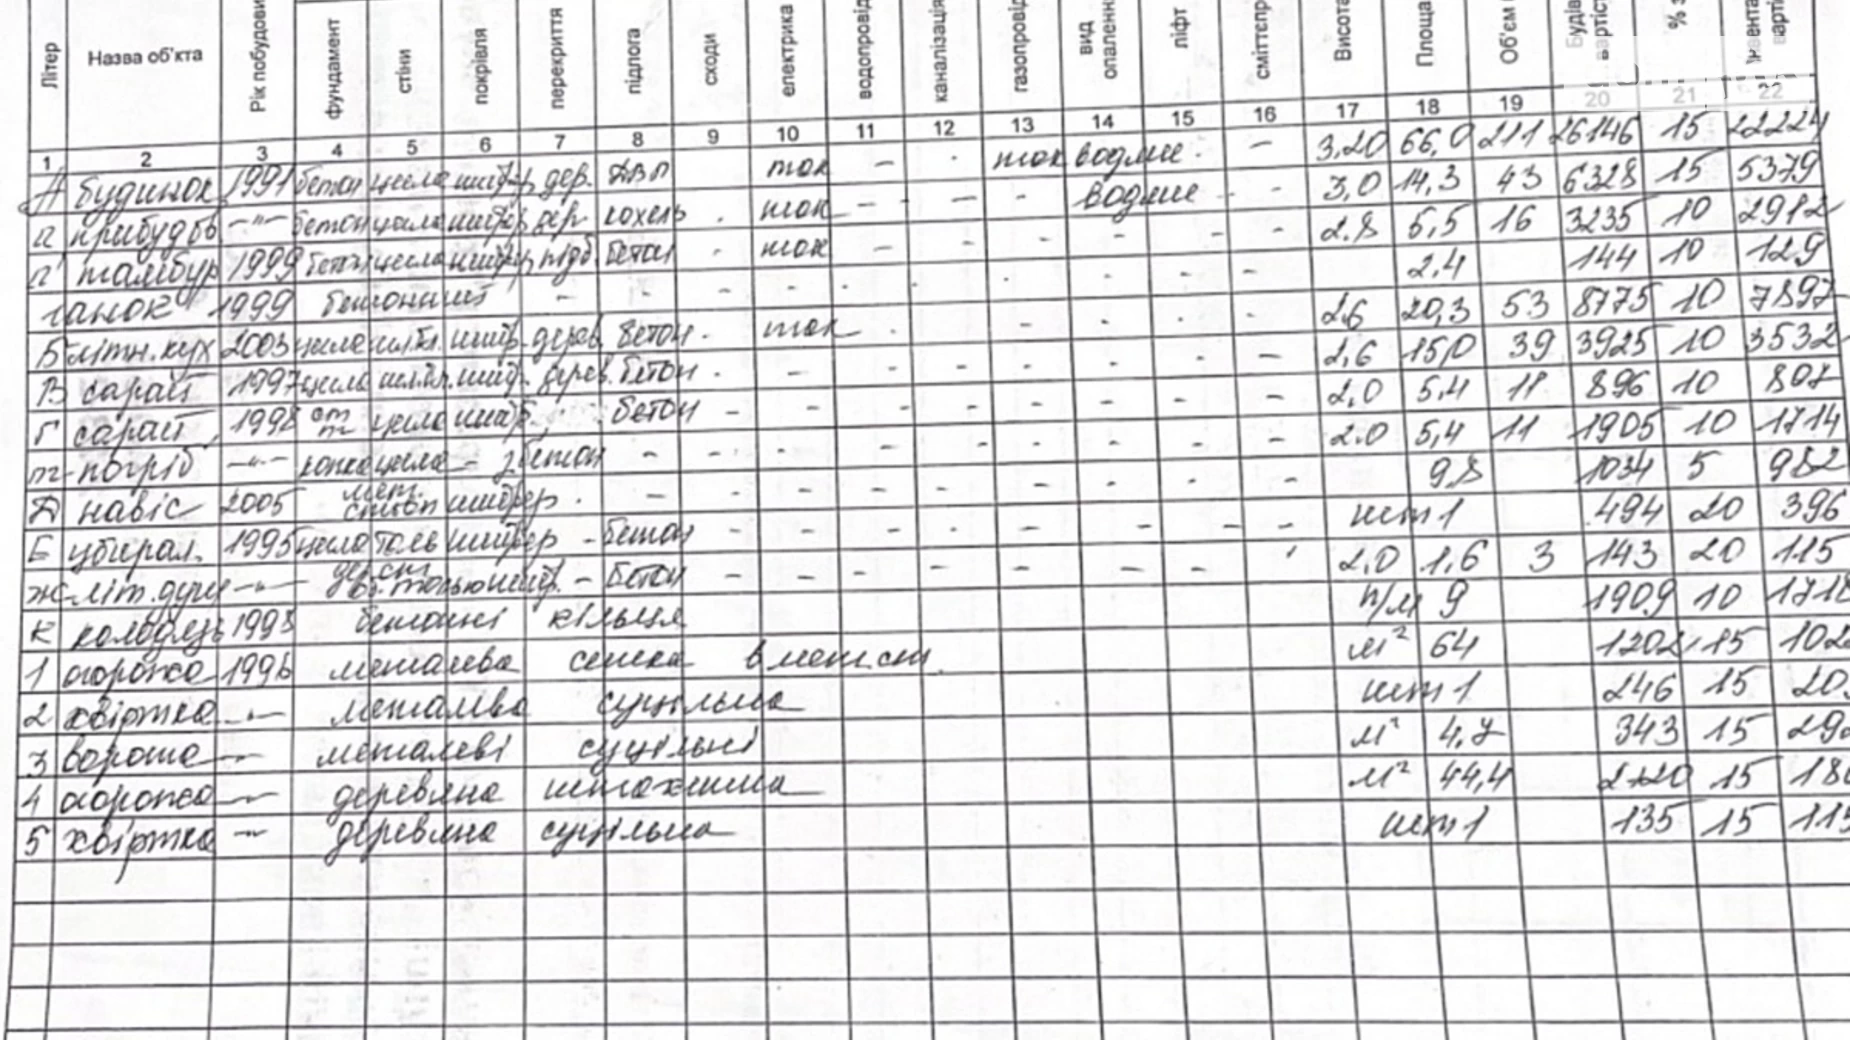 Літер Назва об'єкта Рік побудови фундамент стіни покрівля перекриття підлога сходи електрика водопровід каналізація газопровід вид опалення ліфт сміттєпр Висота Площа Об'єм Будів вартіст % з Інвента варті
1 2 3 4 5 6 7 8 9 10 11 12 13 14 15 16 17 18 19 20 21 22
А будинок 1991 бетон цегла шифер дер. ДВП ток - . ток водяне. - 3.20 66,0 211 26146 15 22224
а прибудов -"- бетон цегла шифер дер кохель . ток - - - - водяне - - 3,0 14,3 43 6328 15 5379
а' тамбур 1999 бетон цегла шифер підб. бетон - ток - - - - - - 2.8 5,5 16 3235 10 2912
ганок 1999 бетонний - - - - - - - - - - - 2.4 144 10 129
Б літн.кух 2003 цегла шл.бл. шифр. дерев. бетон - ток - - - - - - 2.6 20,3 53 8775 10 7897
В сарай 1997 цегла шл.бл. шиф. дерев. бетон - - - - - - - - 2,6 15,0 39 3925 10 3532
Г сарай 1998 цегла шиф. бетон - - - - - - - - - 2,0 5.4 11 896 10 807
погріб -"- цегла - бетон - - - - - - - - - 2.0 5,4 11 1905 10 1714
Д навіс 2005 мет. стовп шифер - - - - - - - - - 9,8 1034 5 982
Е убирал. 1995 цегла толь шифер - бетон - - - - - - - - - шт 1 494 20 396
Ж літ.душ -"- шиф. - бетон - - - - - - - 2.0 1,6 3 143 20 115
К колодязь 1998 бетонні кільця п/м 9 1909 10 1718
1 огорожа 1996 металева сетка в мет.ст. м² 64 1202 15 102
2 хвіртка -"- металева суцільна шт 1 246 15 20
3 ворота -"- металеві суцільні м² 4.7 343 15 29
4 огорожа -"- деревяна штахетна м² 44,4 2120 15 18
5 хвіртка -"- деревяна суцільна шт 1 135 15 115